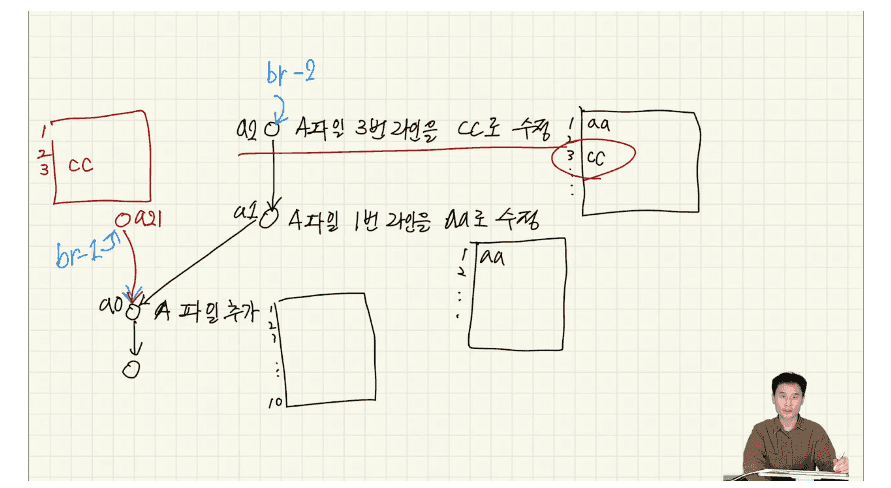 br-2
a2 A파일 3번 라인을 cc로 수정
1 aa
2
3 cc
:
:
1
2
3 cc
a21
br-1
a1 A파일 1번 라인을 aa로 수정
1 aa
2
:
.
a0 A 파일 추가
1
2
3
:
10